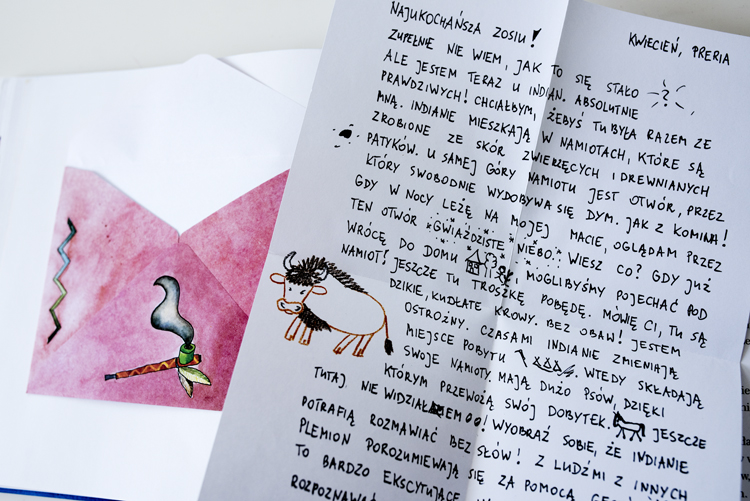 NAJUKOCHAŃSZA ZOSIU!
KWIECIEŃ, PRERIA
ZUPEŁNIE NIE WIEM, JAK TO SIĘ STAŁO
ALE JESTEM TERAZ U INDIAN. ABSOLUTNIE
PRAWDZIWYCH! CHCIAŁBYM, ŻEBYŚ TU BYŁA RAZEM ZE
MNĄ. INDIANIE MIESZKAJĄ W NAMIOTACH, KTÓRE SĄ
ZROBIONE ZE SKÓR ZWIERZĘCYCH I DREWNIANYCH
PATYKÓW. U SAMEJ GÓRY NAMIOTU JEST OTWÓR, PRZEZ
KTÓRY SWOBODNIE WYDOBYWA SIĘ DYM. JAK Z KOMINA!
GDY W NOCY LEŻĘ NA MOJEJ MACIE, OGLĄDAM PRZEZ
TEN OTWÓR GWIAŹDZISTE NIEBO. WIESZ CO? GDY JUŻ
WRÓCĘ DO DOMU MOGLIBYŚMY POJECHAĆ POD
NAMIOT! JESZCZE TU TROSZKĘ POBĘDĘ. MÓWIĘ CI, TU SĄ
DZIKIE, KUDŁATE KROWY. BEZ OBAW! JESTEM
OSTROŻNY. CZASAMI INDIANIE ZMIENIAJĄ
MIEJSCE POBYTU. WTEDY SKŁADAJĄ
SWOJE NAMIOTY. MAJĄ DUŻO PSÓW, DZIĘKI
KTÓRYM PRZEWOŻĄ SWÓJ DOBYTEK. JESZCZE
TUTAJ NIE WIDZIAŁEM GO! WYOBRAŹ SOBIE, ŻE INDIANIE
POTRAFIĄ ROZMAWIAĆ BEZ SŁÓW! Z LUDŹMI Z INNYCH
PLEMION POROZUMIEWAJĄ SIĘ ZA POMOCĄ
TO BARDZO EKSCYTUJĄCE
ROZPOZNAWAĆ